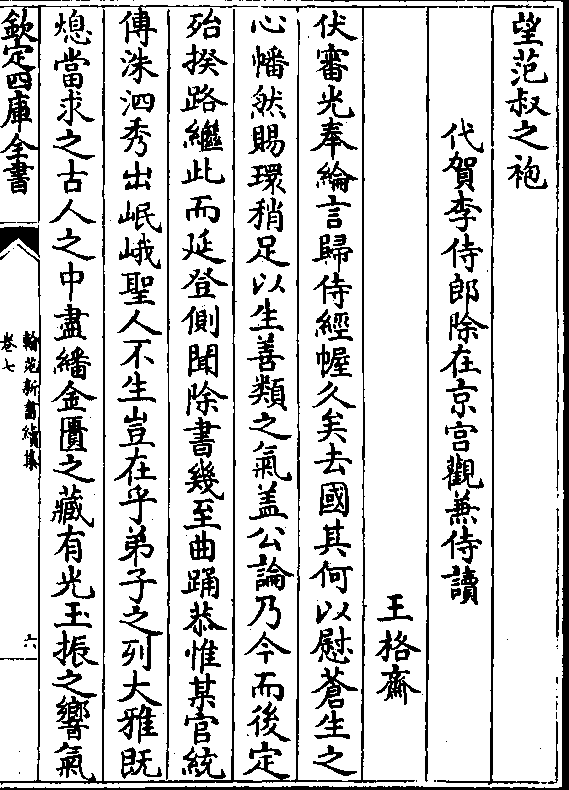 望范叔之袍
代賀李侍郎除在京宫觀兼侍讀
王格齋
伏審光奉綸言歸侍經幄久矣去國其何以慰蒼生之
心幡然賜環稍足以生善類之氣盖公論乃今而後定
殆揆路繼此而延登側聞除書幾至曲踊恭惟某官統
傳洙泗秀出岷峨聖人不生豈在乎弟子之列大雅既
熄當求之古人之中盡繙金匱之藏有光玉振之響氣
欽定四庫全書
翰苑新書續集
卷七
六